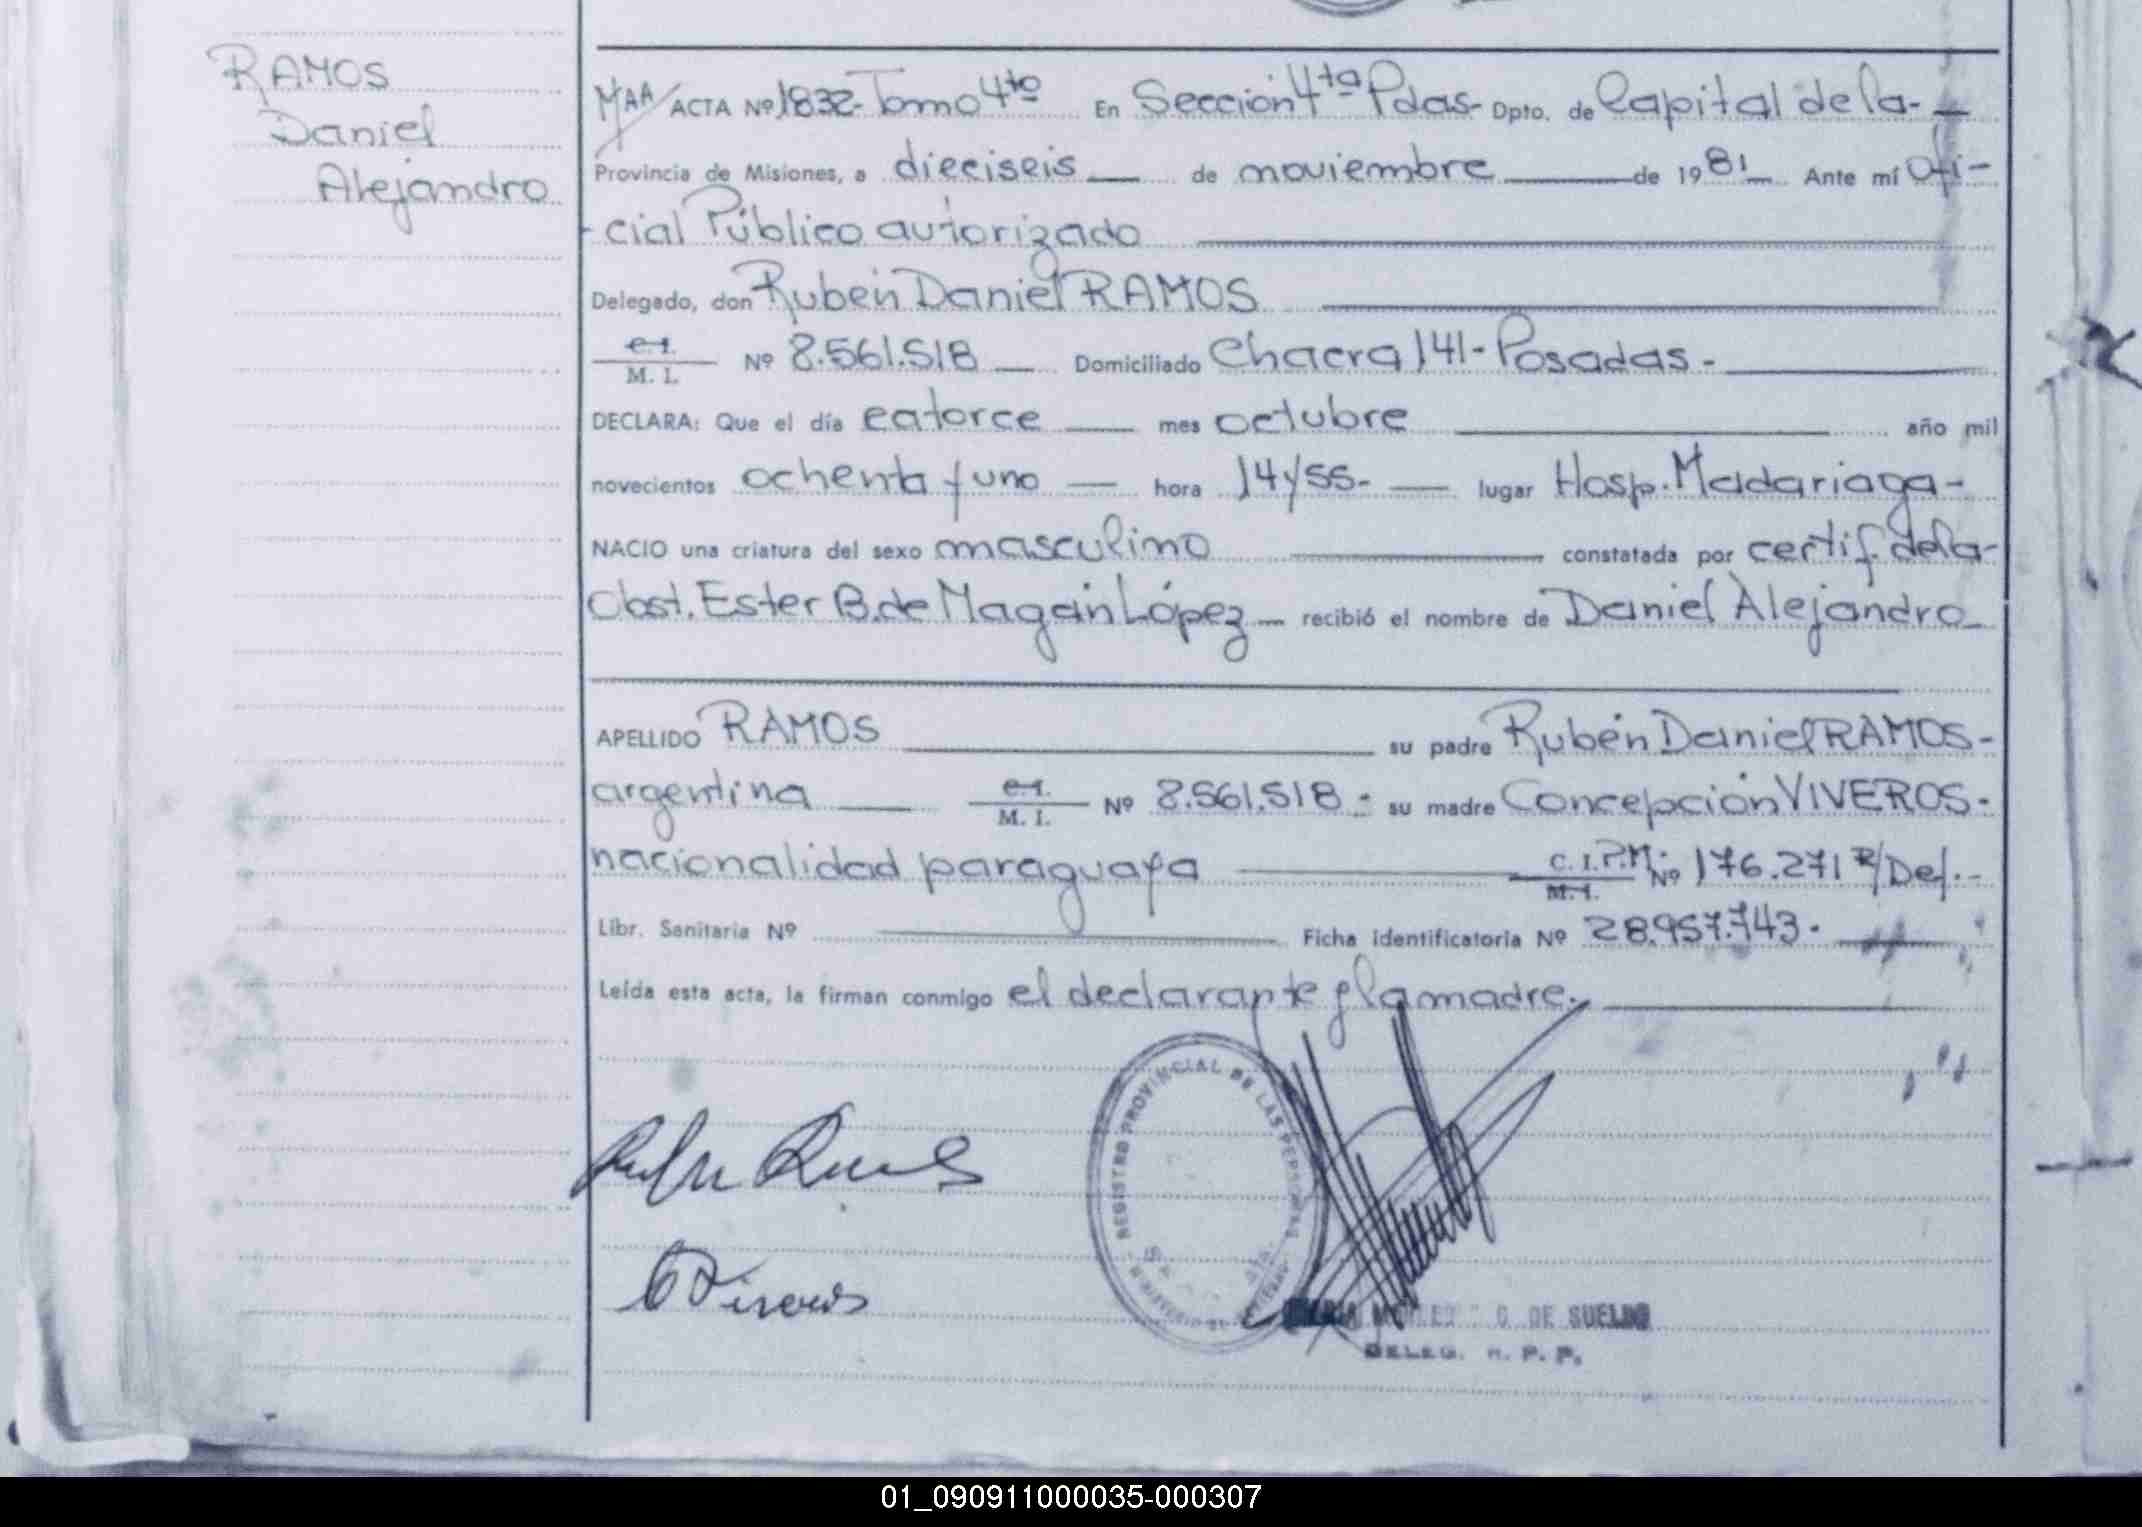 RAMOS
Daniel
Alejandro
MAA/ ACTA Nº 1832- Tomo 4to En Sección 4ta Pdas- Dpto. de Capital de la-
Provincia de Misiones, a dieciseis de noviembre de 1981 Ante mí Ofi-
-cial Público autorizado
Delegado, don Rubén Daniel RAMOS
C. I. M. I. Nº 8.561.518 Domiciliado Chacra 141- Posadas-
DECLARA: Que el día catorce mes octubre año mil
novecientos ochenta y uno hora 14/55- lugar Hosp. Madariaga-
NACIO una criatura del sexo masculino constatada por certif. de la-
Obst. Ester B. de Magán López recibió el nombre de Daniel Alejandro
APELLIDO RAMOS su padre Rubén Daniel RAMOS-
argentina C. I. M. I. Nº 8.561.518- su madre Concepción VIVEROS-
nacionalidad paraguaya C. I. P.M. M. I. Nº 176.271 R/Def.-
Libr. Sanitaria Nº Ficha identificatoria Nº 28.957.743.
Leída esta acta, la firman conmigo el declarante y la madre.
REGISTRO PROVINCIAL DE LAS PERSONAS
DE SUELDO
DELEG. R. P. P.
01_090911000035-000307